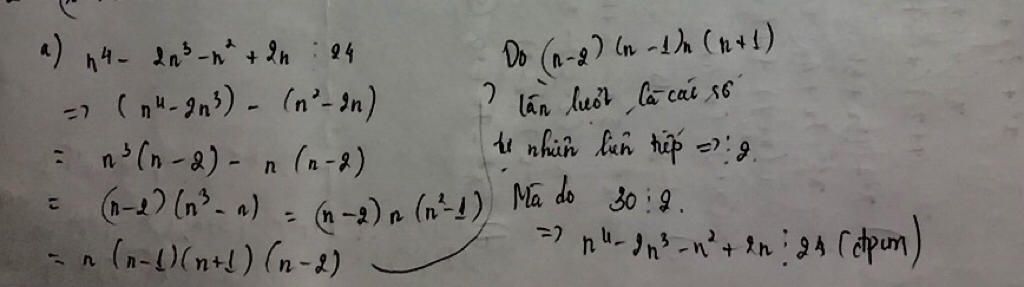 a) n⁴ - 2n³ - n² + 2n ⋮ 24
=> (n⁴ - 2n³) - (n² - 2n)
= n³(n - 2) - n (n - 2)
= (n-2)(n³ - n) = (n-2) n (n²-1)
= n (n-1)(n+1)(n-2)
Do (n-2)(n-1)n(n+1)
lần lượt là các số
tự nhiên liên tiếp => ⋮ 2.
Mà do 30 ⋮ 2.
=> n⁴ - 2n³ - n² + 2n ⋮ 24 (đpcm)